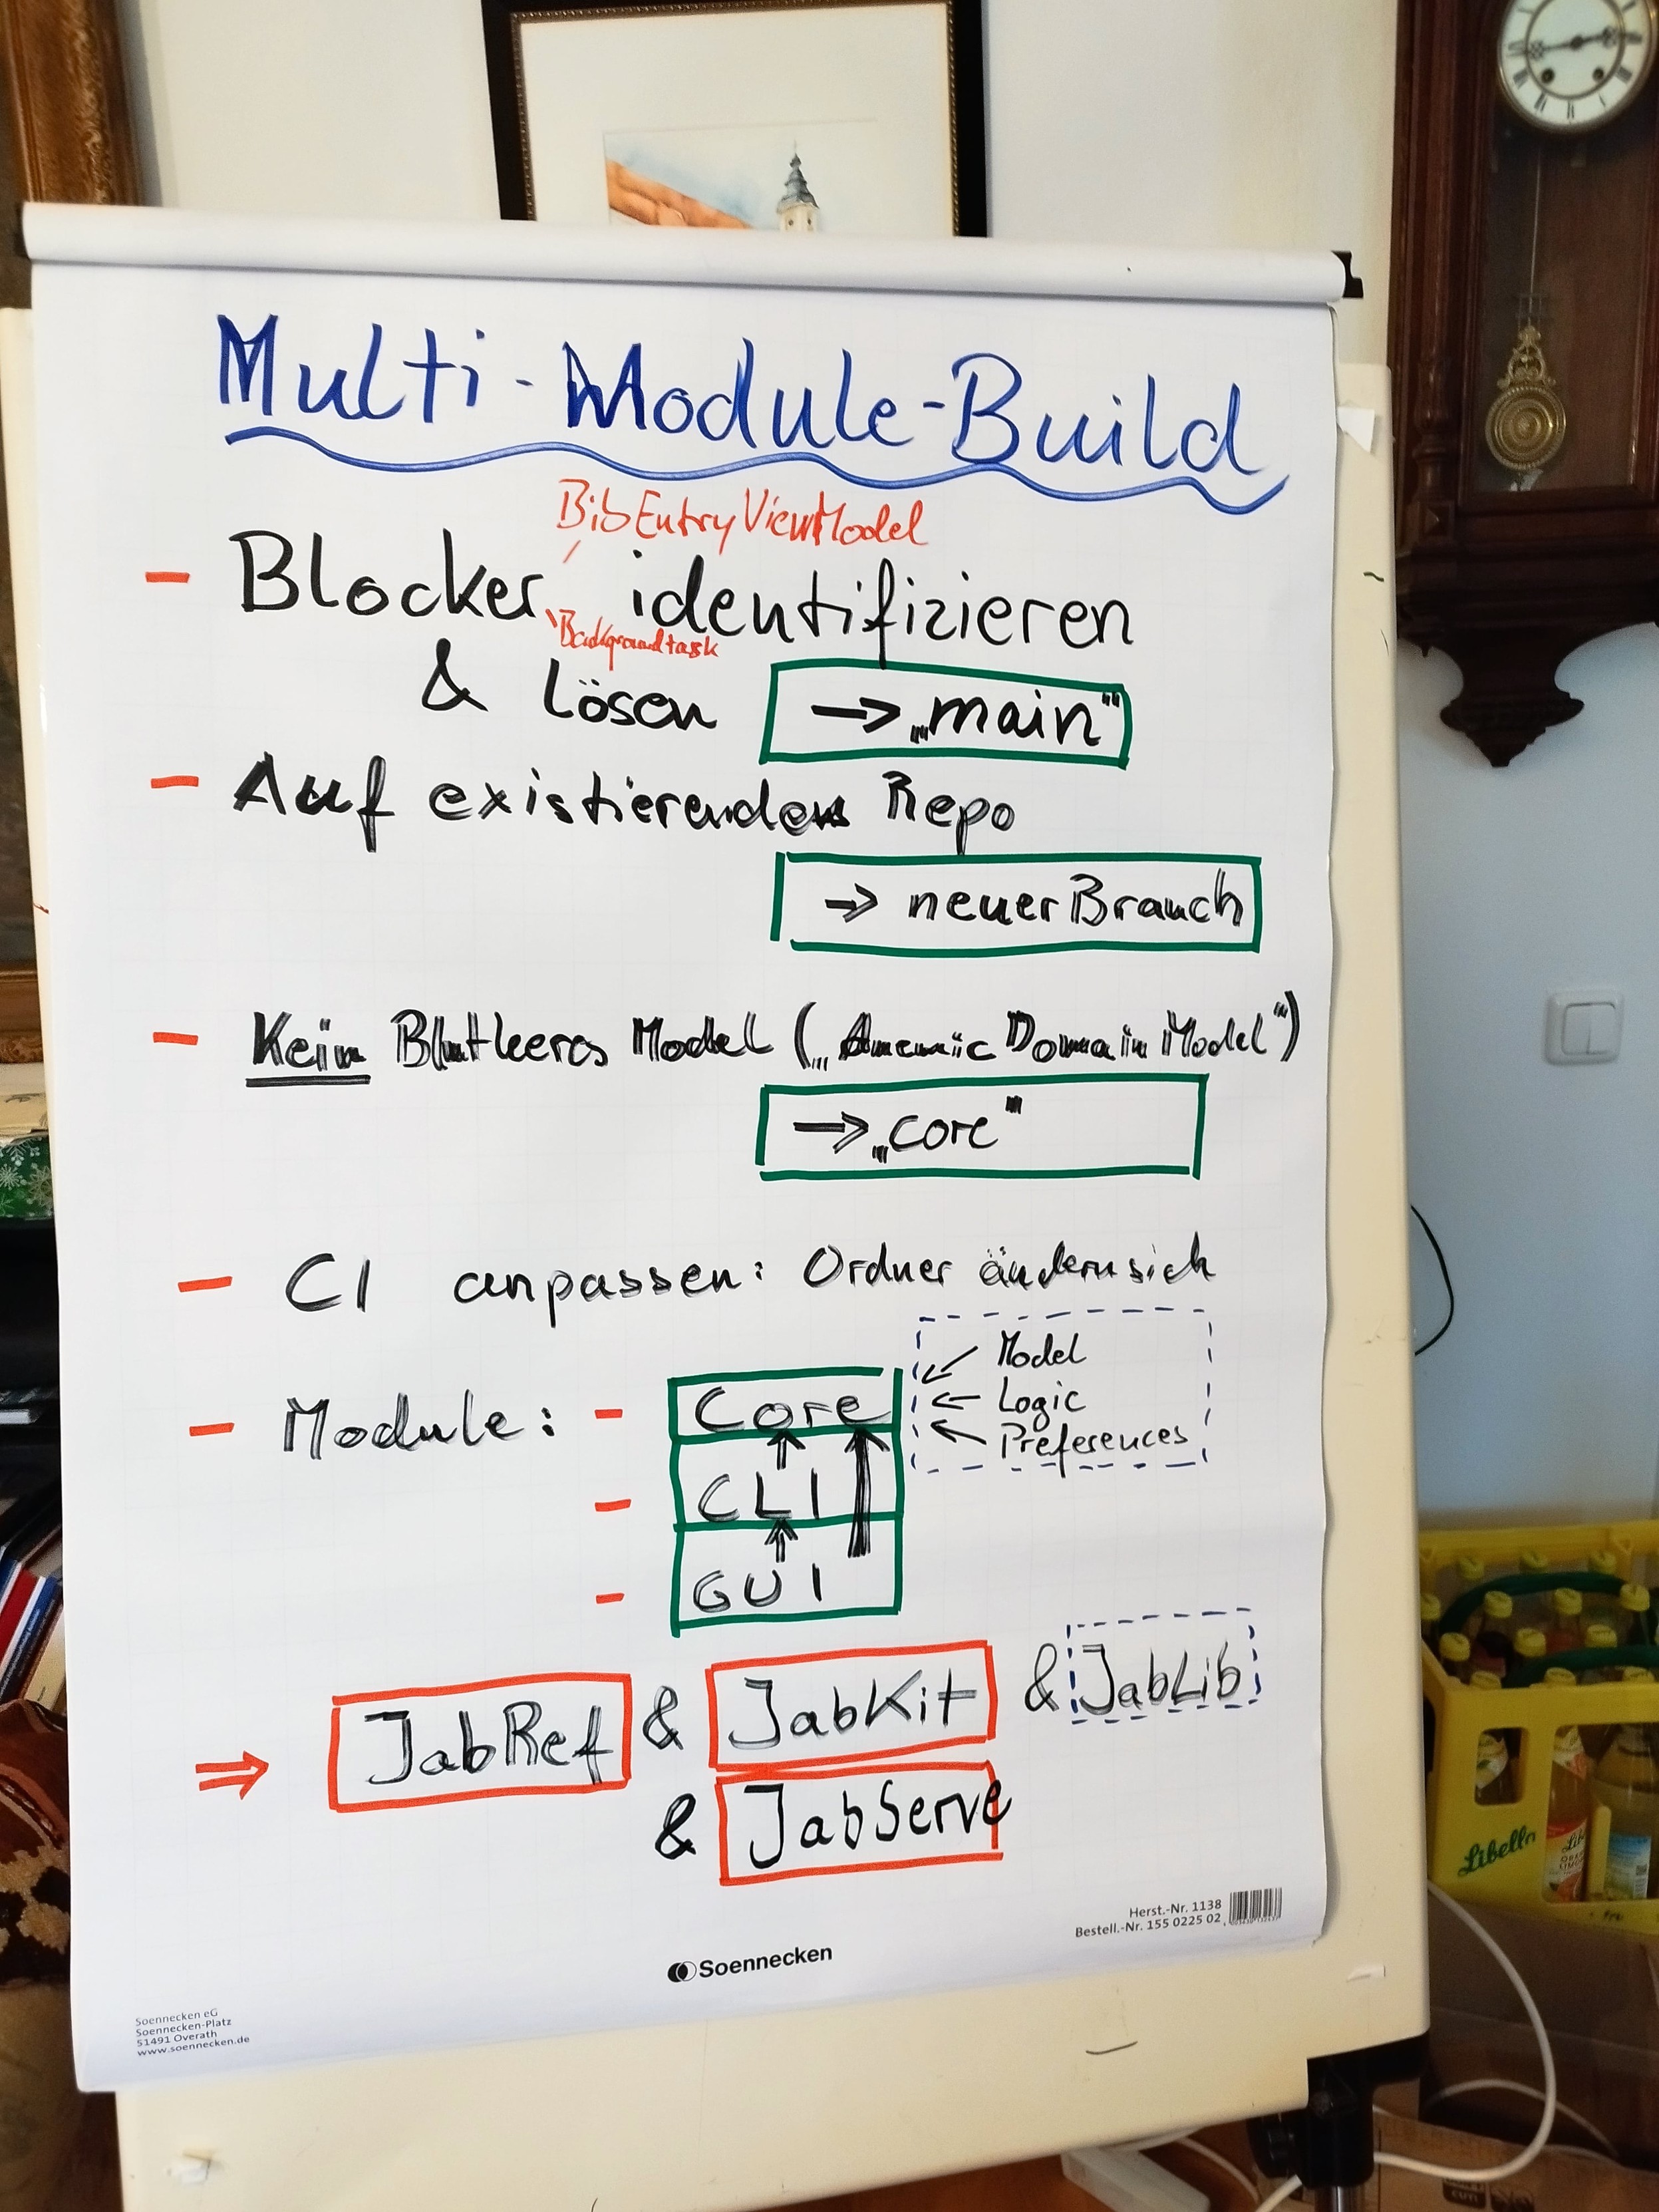 Multi-Module-Build
BibEntryViewModel
- Blocker identifizieren
Backgroundtask
& lösen → „main“
- Auf existierendem Repo
→ neuer Branch
- Kein Blutleeres Model („Anemic Domain Model“)
→ „core“
- CI anpassen: Ordner ändern sich
- Module: - Core
← Model
← Logic
← Preferences
- CLI
- GUI
⇒ JabRef & JabKit & JabLib
& JabServe
Herst.-Nr. 1138
Bestell.-Nr. 155 0225 02
Soennecken
Soennecken eG
Soennecken-Platz
51491 Overath
www.soennecken.de
Libella